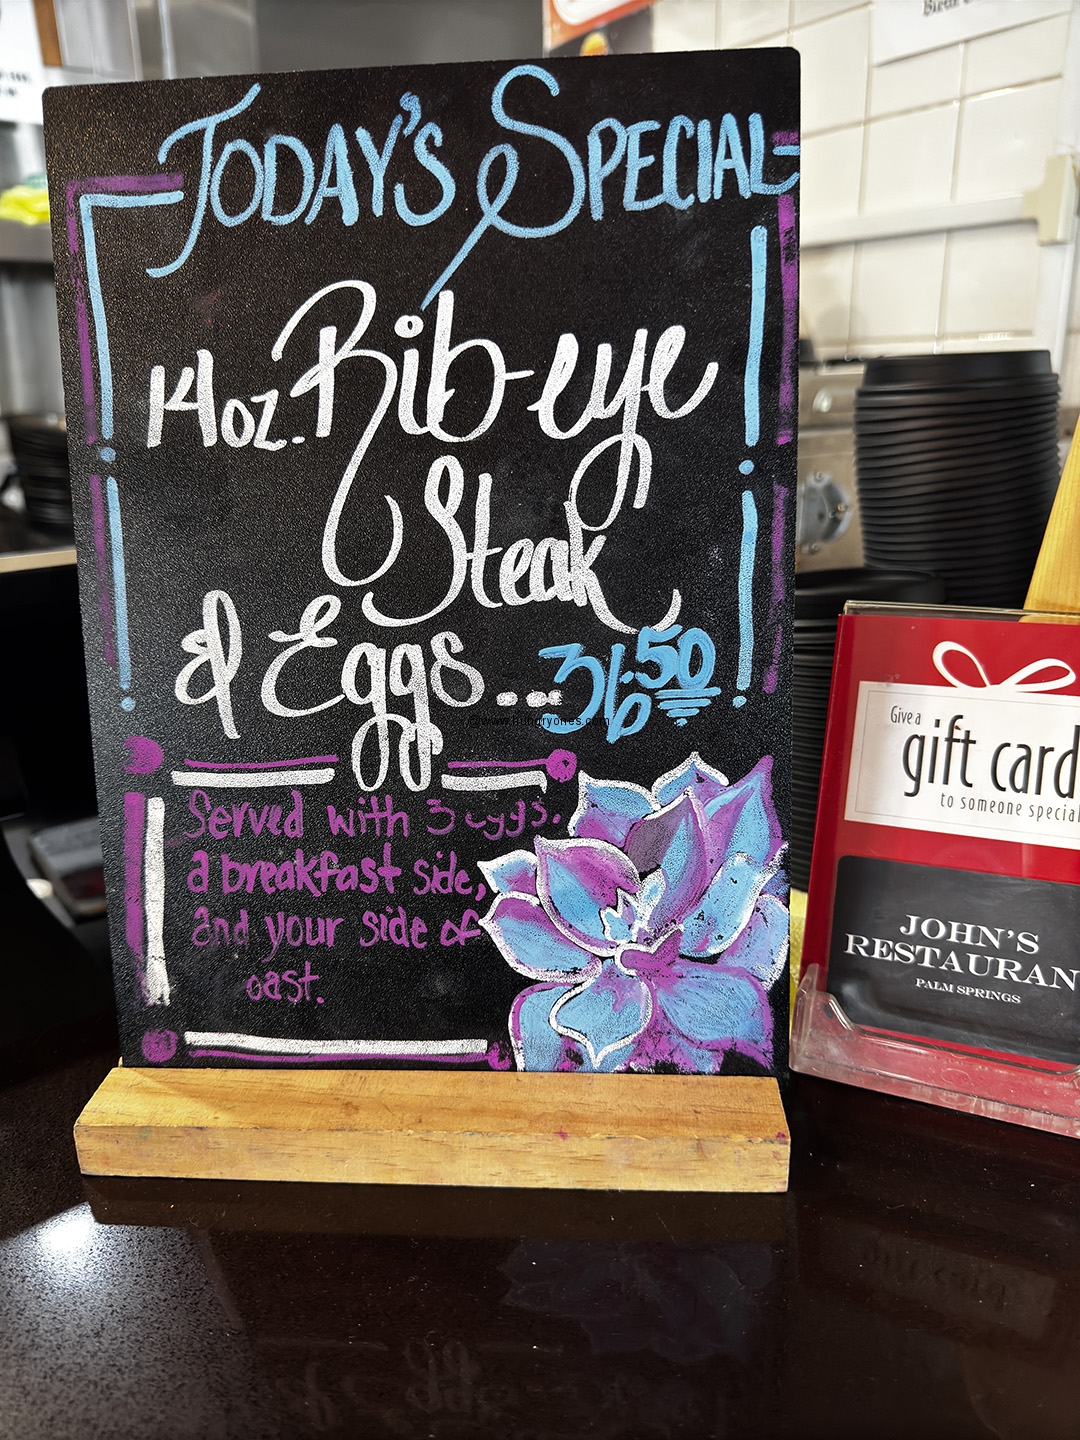 Birth
TODAY'S SPECIAL
14oz. Rib-eye
Steak
& Eggs... 36.50
@www.hungryones.com
Served with 3 eggs.
a breakfast side,
and your side of
oast.
Give a
gift card
to someone special
JOHN'S
RESTAURAN
PALM SPRINGS